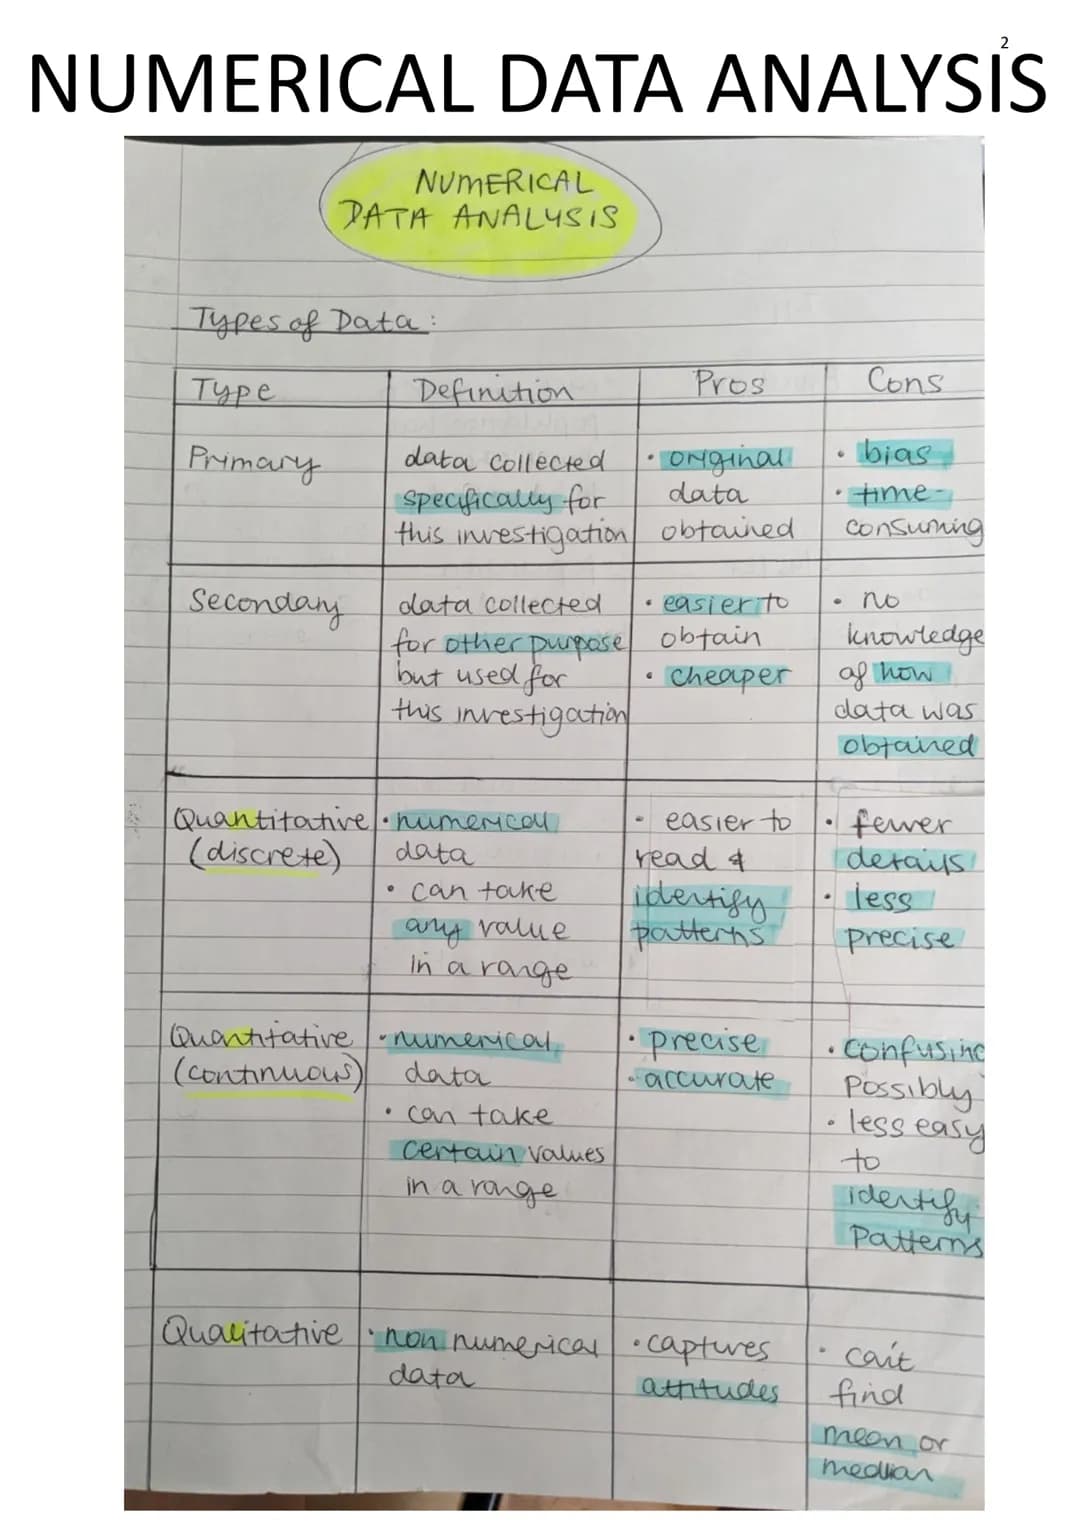 2
NUMERICAL DATA ANALYSIS
NUMERICAL
DATA ANALYSIS
Types of Data:
Type
Definition
Pros
Cons
Primary
data collected
specifically for
this investigation
• original
data
obtained
• bias
• time-
consuming
Secondary
data collected
for other purpose
but used for
this investigation
• easier to
obtain
• cheaper
• no
knowledge
of how
data was
obtained
Quantitative
(discrete)
• numerical
data
• can take
any value
in a range
• easier to
read &
identify
patterns
• fewer
details
• less
precise
Quantitative
(continuous)
• numerical
data
• can take
certain values
in a range
• precise
• accurate
• confusing
possibly
• less easy
to
identify
patterns
Qualitative
• non numerical
data
• captures
attitudes
• can't
find
mean or
median